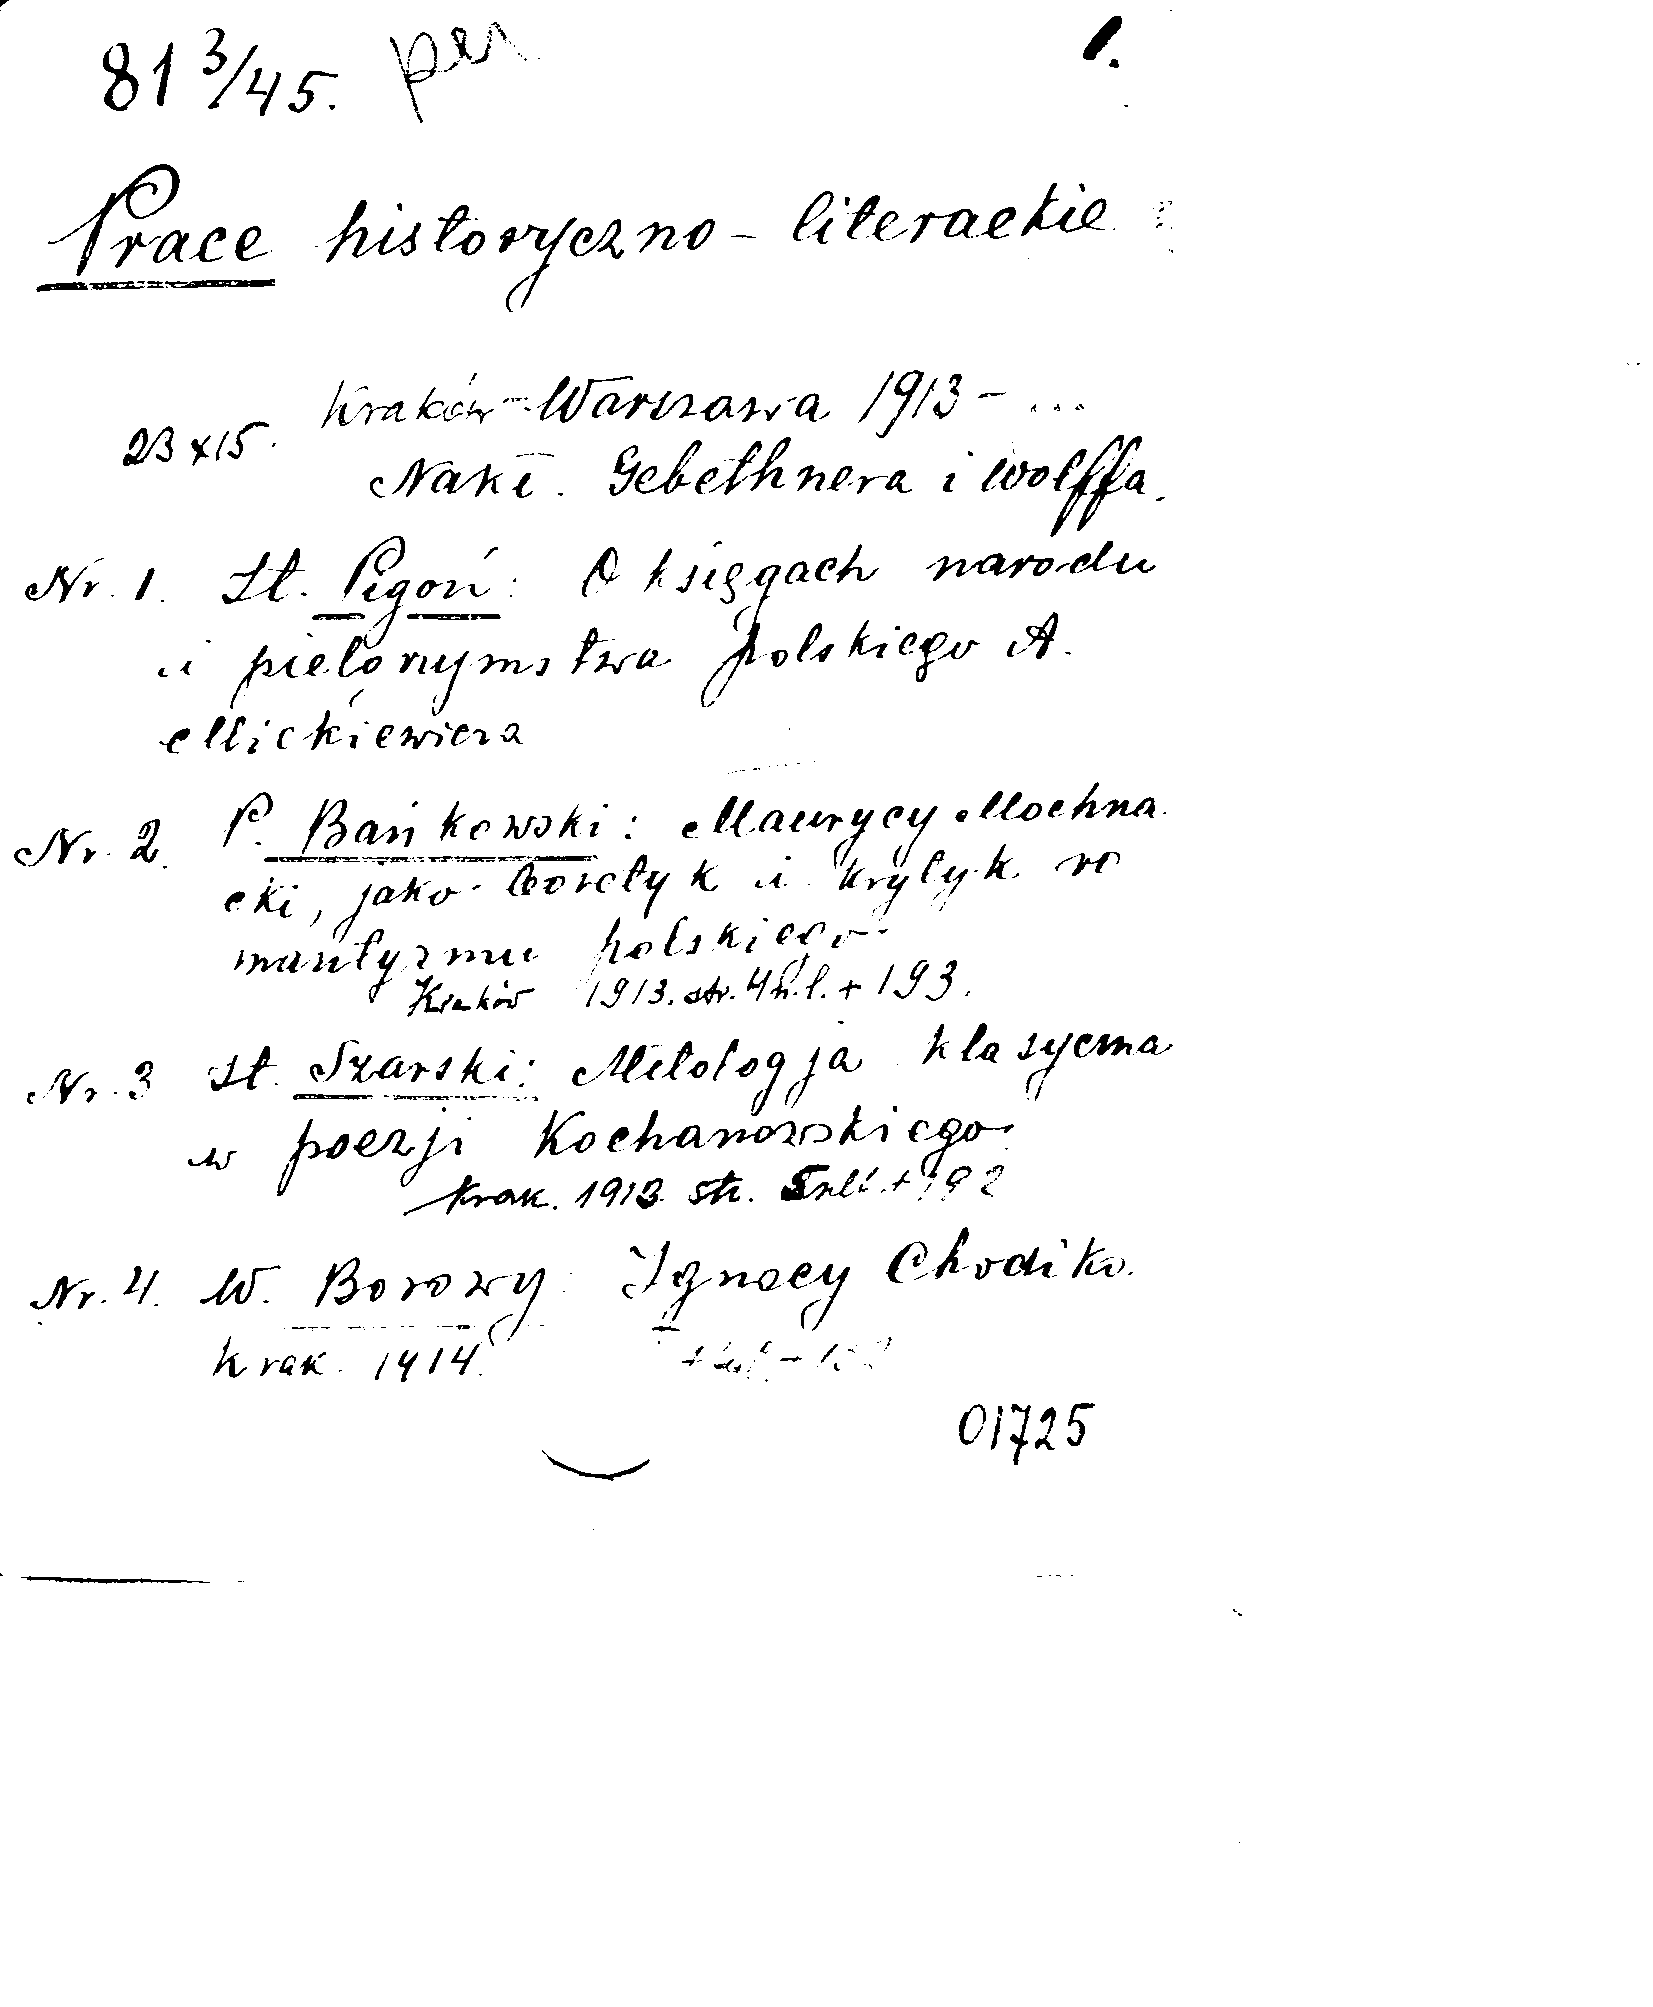 81 3/45. per 1.
Prace historyczno-literackie
Kraków-Warszawa 1913 - ...
23 x 15.
Nakł. Gebethnera i Wolffa.
Nr. 1. St. Pigoń: O księgach narodu
i pielgrzymstwa polskiego A.
Mickiewicza
Nr. 2. P. Bańkowski: Maurycy Mochna
cki, jako teoretyk i krytyk ro
mantyzmu polskiego
Kraków 1913. str. 4 n.l. + 193.
Nr. 3 St. Szarski: Mitologja klasyczna
w poezji Kochanowskiego
Krak. 1913 str. 5 nlb + 192
Nr. 4. W. Borowy: Ignacy Chodźko.
Krak. 1914.
01725